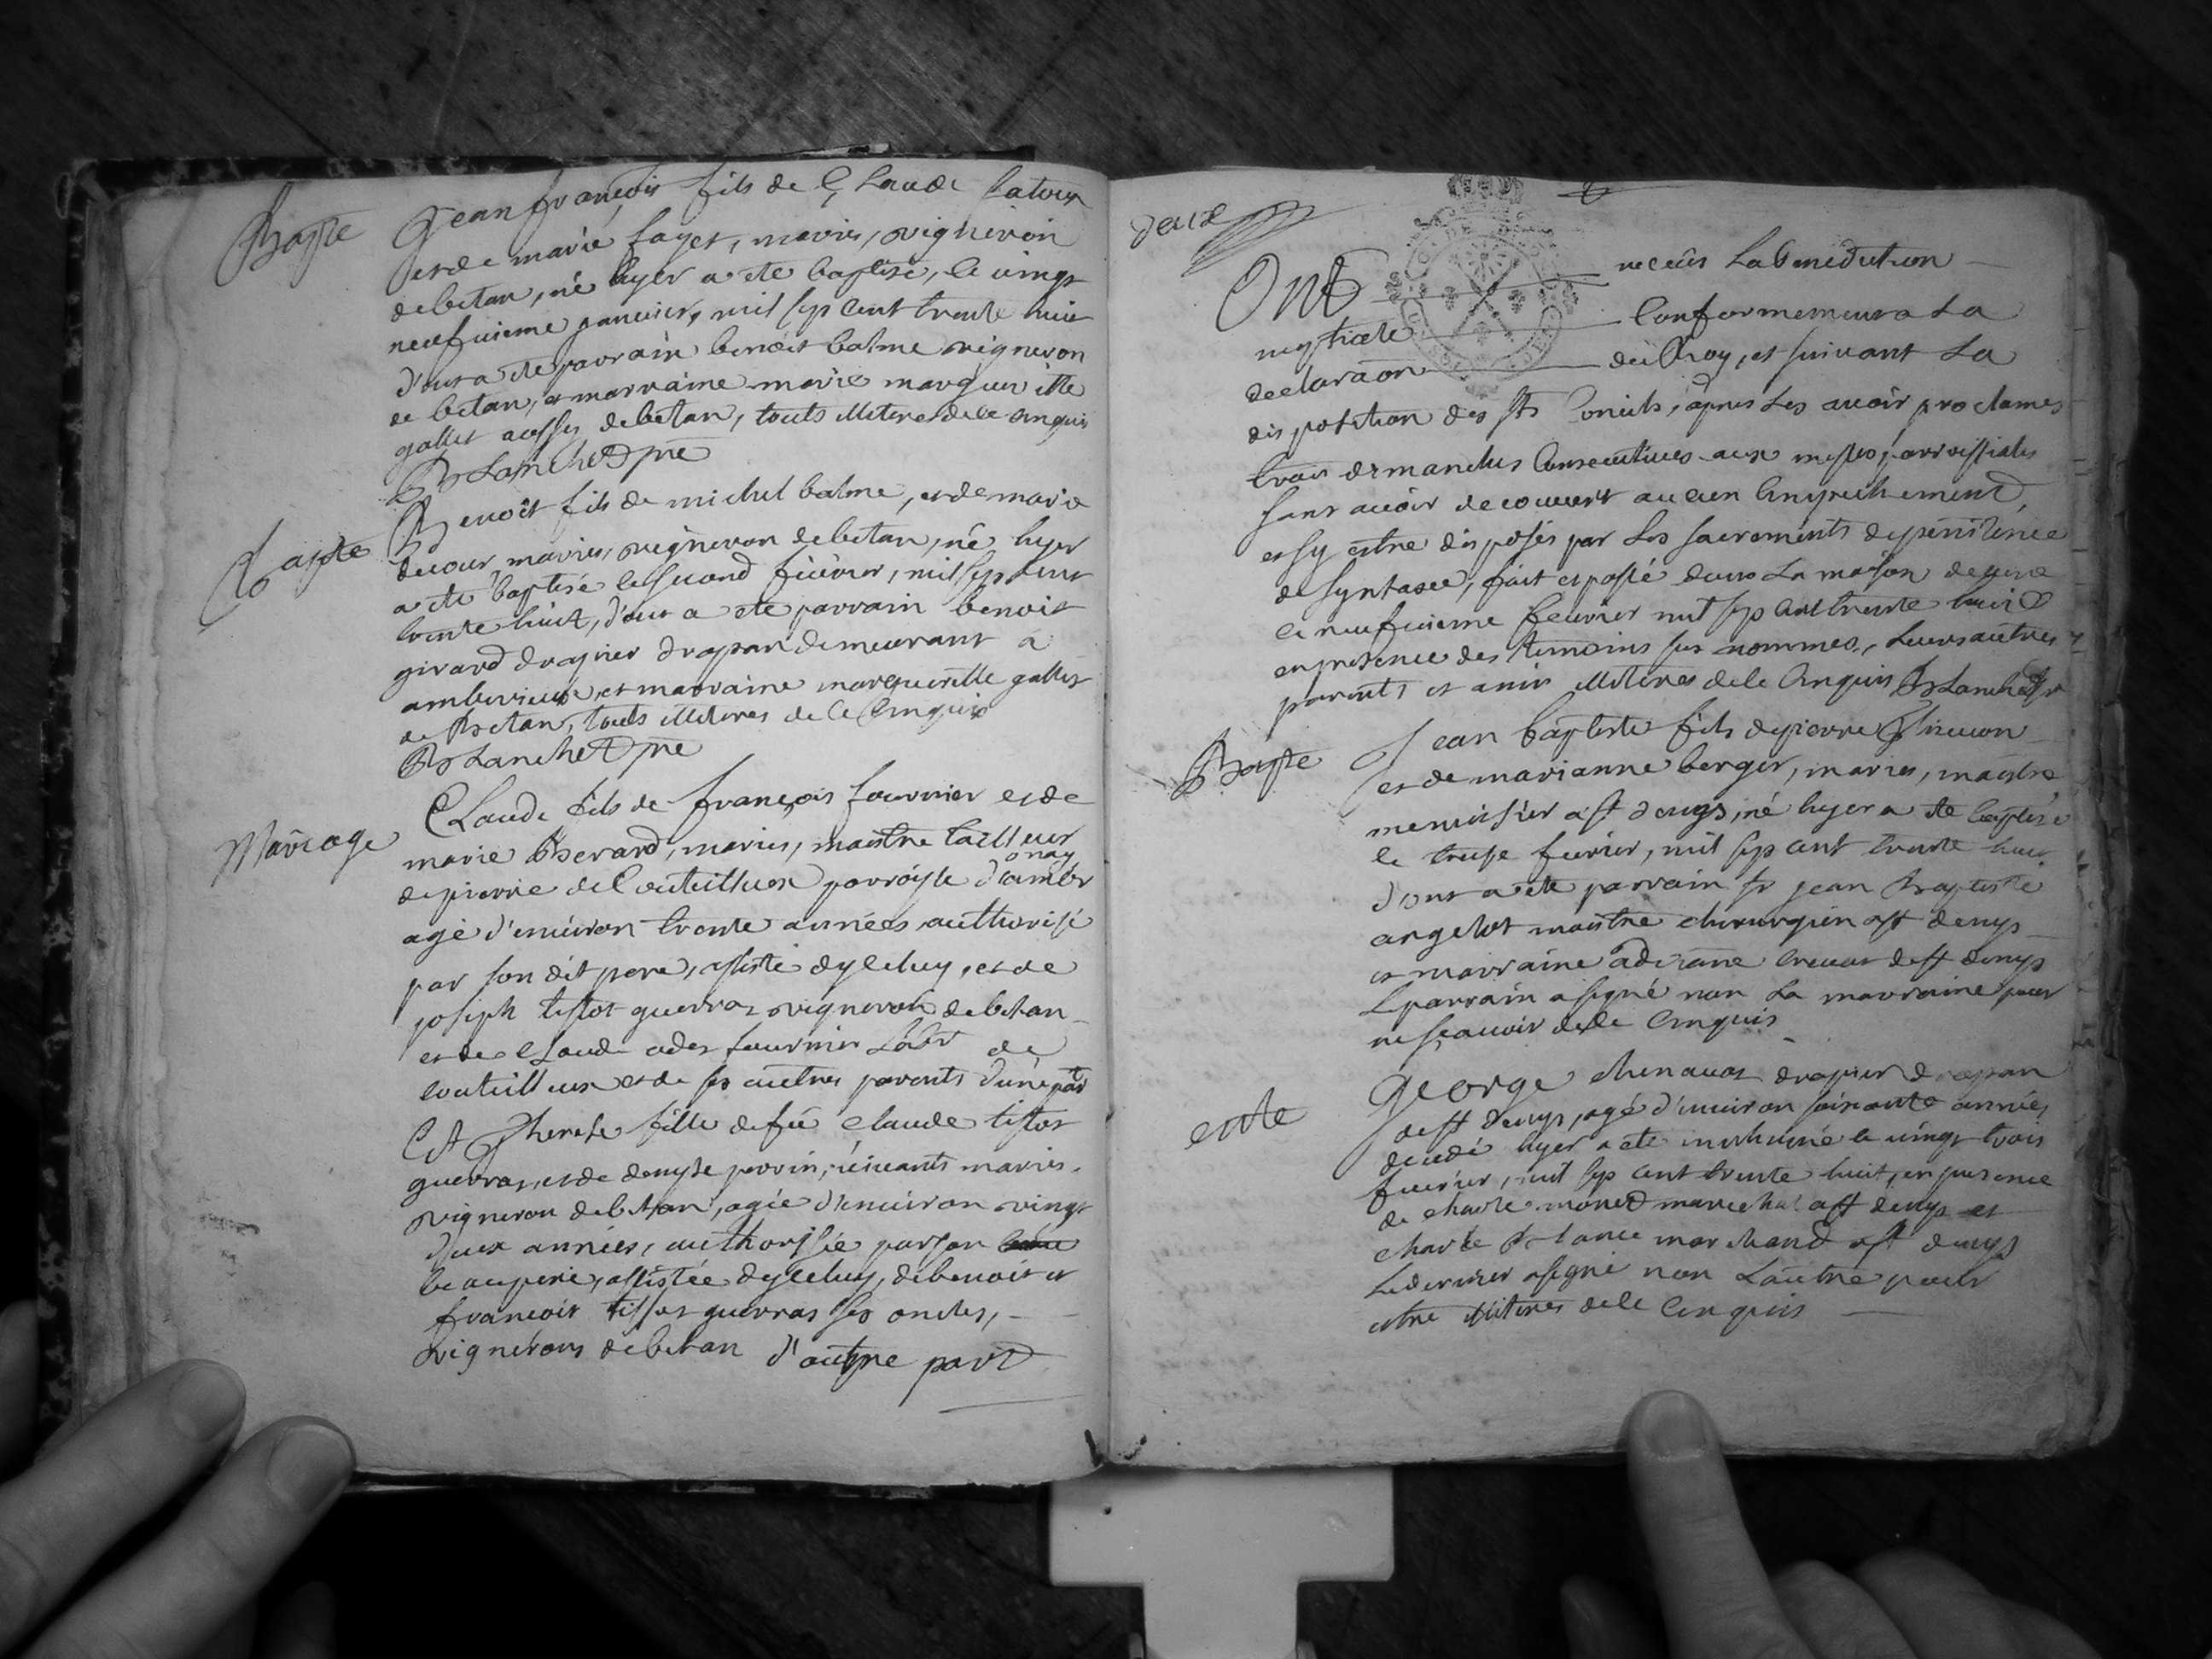 Bapte
Jean françois fils de Claude Latour
et de marie fayet, mariés, vigneron
de betan, né hyer a ete baptisé, le vingt
neufuieme januier, mil sept cent trente huit
d'ont a ete parrain benoit balme vigneron
de betan, et marraine marie margueritte
gallet aussy de betan, touts illiteres de ce enquis
Blanchet ptre
Bapte
Benoît fils de michel balme, et de marie
decour, mariés, vigneron de betan, né hyer
a ete baptisé le second feürier, mil sept cent
trente huit, d'ont a ete parrain benoit
girard drapier drapan demeurant a
amberieux, et marraine margueritte gallet
de Betan, touts illiteres de ce enquis
Blanchet ptre
Mariage
Claude fils de françois fournier et de
marie Berard, mariés, maistre tailleur
de pierre de Couteillieux parroisse d'ambr
onay
agé d'enuiron trente années, authorisé
par son dit pere, assisté dyceluy, et de
joseph tissot guerraz vigneron de betan
et de Claude fournier Labr de
Couteillieux et de ses autres parents d'une part
Et Therese fille de feu Claude tissot
guerraz, et de denyse perrin, viuants mariés
vigneron de betan, agée d'enuiron vingt
deux années, authorisée par son
beaupere, assistée dyceluy, de benoit et
francois tissot guerras ses oncles,
vignerons de betan d'autre part
deux
Ont receus La benediction
nuptiale Conformement a La
declaraon du Roy, et suiuant La
disposition des Sts Conciles, apres Les auoir proclamés
trois dimanches Consecutiues aux messes parroissiales
sans auoir decouuert aucun Empechement,
et sy estre disposés par Les sacrements de penitence
de syntaxe, fait et passé dans La maison de cure
ce neufuieme feurier mil sept cent trente huit
en presence des temoins sus nommés, Leurs autres
parents et amis illiteres de ce Enquis Blanchet ptr
Bapte
Jean baptiste fils de pierre
et de marianne berger, mariés, maistre
menuisier a st denys, né hyer a ete baptisé
le treise feurier, mil sept cent trente huit
d'ont a ete parrain sr jean Baptiste
angelot maistre chirurgien a st denys
et marraine adriane de st denys
Le parrain a signé non La marraine pour
ne sçauoir de ce Enquis
ente
George chenauaz drapier drapan
de st denys, agé d'enuiron soixante années
decedé hyer a ete inhumé le vingt trois
feurier, mil sept cent trente huit, en presence
de charle monet marechal a st denys et
charle marchand a st denys
Le dernier a signé non L'autre pour
estre illiteres de ce Enquis